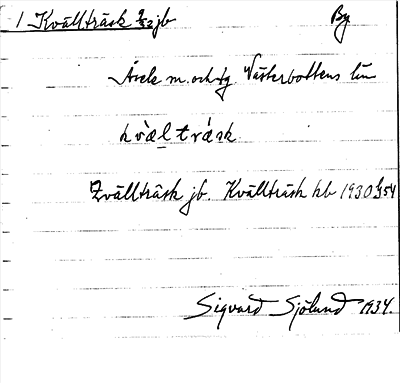 1 Kvällträsk 9/22 jb By
Åsele m. och tg. Västerbottens län
kvæ̀l trásk
Qvällträsk jb. Kvällträsk kb 1930 s 54
Sigvard Sjölund 1934.